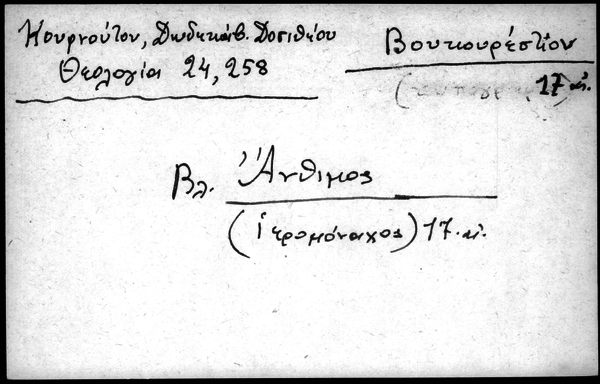 Κουρνούτου, Δωδεκάβ. Δοσιθέου
Θεολογία 24, 258
Βουκουρέστιον
17 αἰ.
Βλ. Ἄνθιμος
(ἱερομόναχος) 17. αἰ.